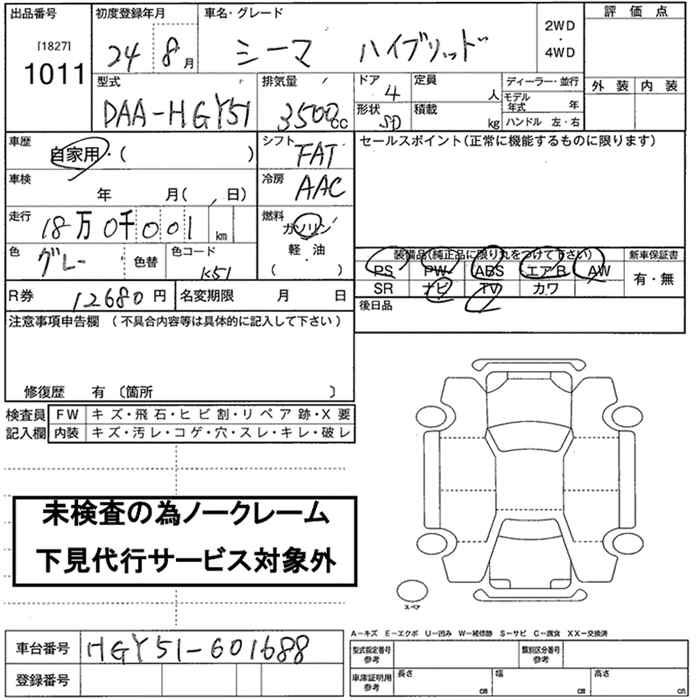 出品番号
[1827]
1011
初度登録年月
24 8月
車名・グレード
シーマ ハイブリッド
2WD
・
4WD
評価点
外装 内装
型式
DAA-HGY51
排気量
3500cc
ドア
4
形状
SD
定員
人
積載
kg
ディーラー・並行
モデル年式 年
ハンドル 左・右
車歴
自家用・( )
シフト
FAT
車検
年 月( 、日)
冷房
AAC
走行
18万0千001 km
燃料
ガソリン
軽・油
( )
色
グレー
色替
色コード
K51
R券 12680円
名変期限 月 日
セールスポイント(正常に機能するものに限ります)
装備品(純正品に限り丸をつけて下さい)
PS PW ABS エアB AW
SR ナビ TV カワ
新車保証書
有・無
後日品
注意事項申告欄 (不具合内容等は具体的に記入して下さい)
修復歴 有〔箇所 〕
検査員
記入欄
FW キズ・飛石・ヒビ割・リペア跡・X要
内装 キズ・汚レ・コゲ・穴・スレ・キレ・破レ
未検査の為ノークレーム
下見代行サービス対象外
スペア
A-キズ E-エクボ U-凹み W-補修跡 S-サビ C-腐食 XX-交換済
車台番号 HGY51-601688
登録番号
型式指定番号
参考
類別区分番号
参考
車庫証明用
参考
長さ cm
幅 cm
高さ cm